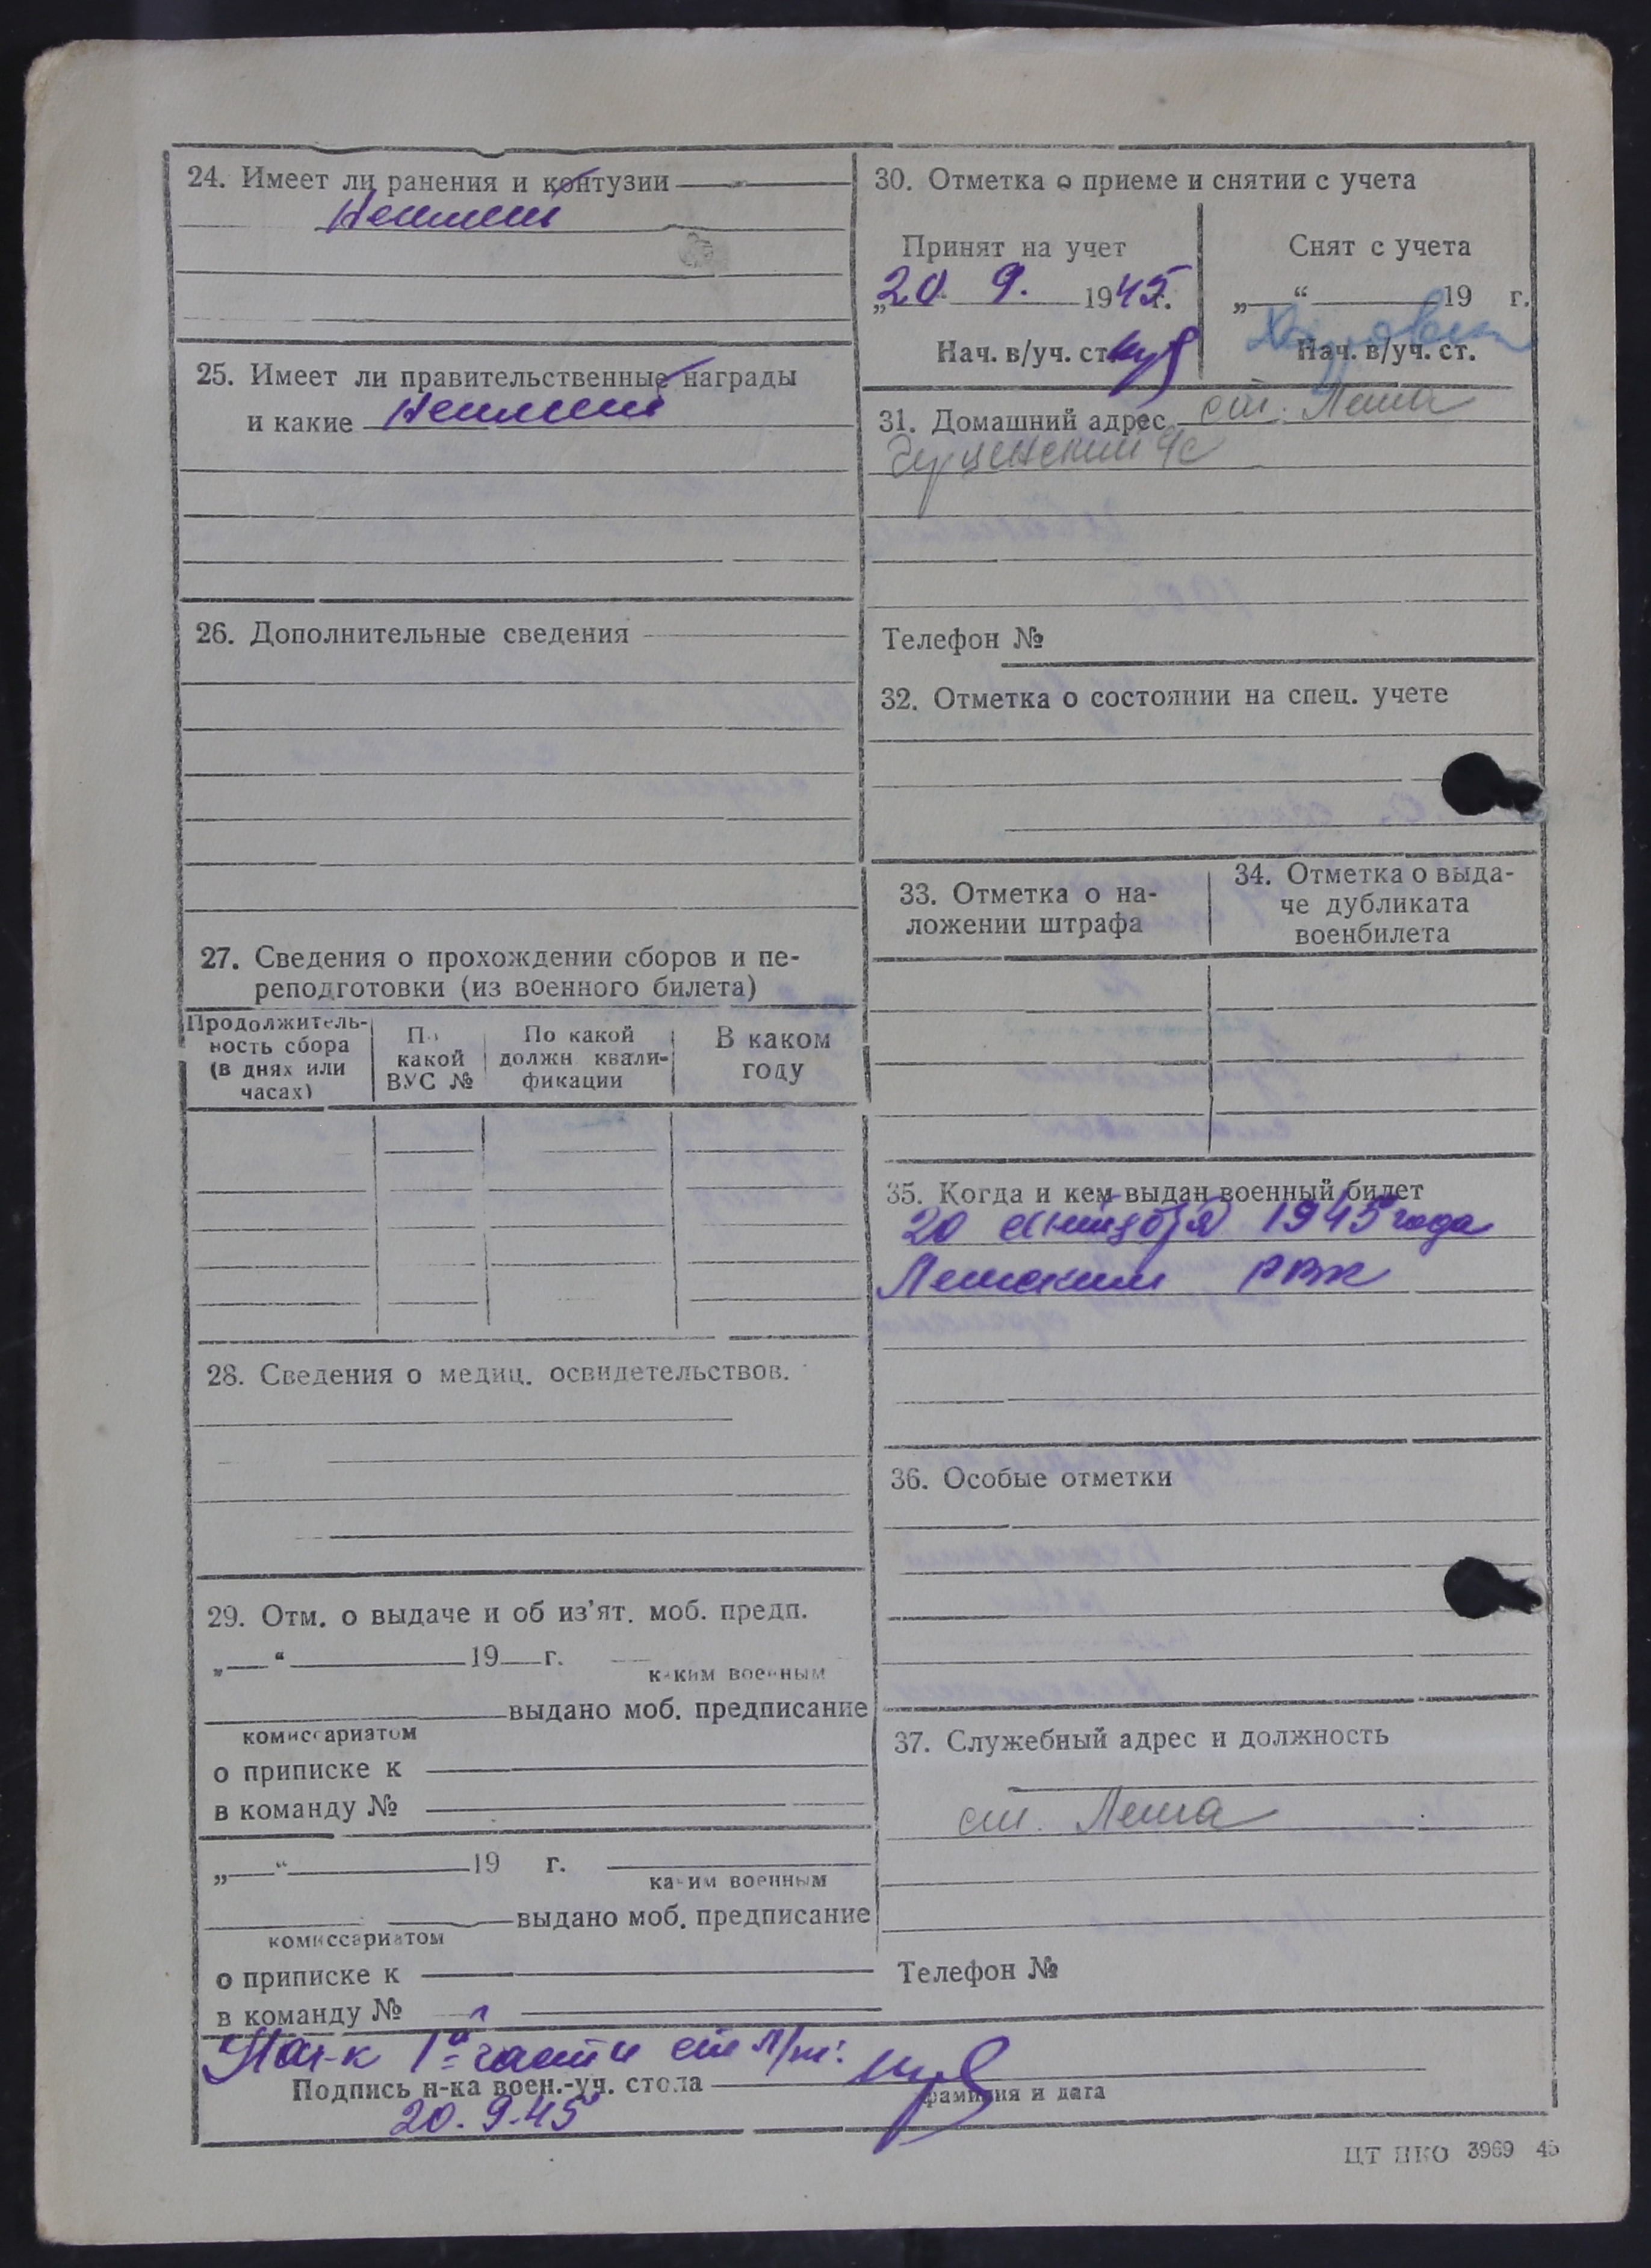 24. Имеет ли ранения и контузии
Не имеет
25. Имеет ли правительственные награды
и какие Не имеет
26. Дополнительные сведения
27. Сведения о прохождении сборов и пе-
реподготовки (из военного билета)
Продолжитель-
ность сбора
(в днях или
часах)
По
какой
ВУС №
По какой
должн квали-
фикации
В каком
году
28. Сведения о медиц. освидетельствов.
29. Отм. о выдаче и об из'ят. моб. предп.
„ “ 19 г.
каким военным
выдано моб. предписание
комиссариатом
о приписке к
в команду №
„ “ 19 г.
каким военным
выдано моб. предписание
комиссариатом
о приписке к
в команду №
30. Отметка о приеме и снятии с учета
Принят на учет
„20 9. 1945г.
Нач. в/уч. ст.
Снят с учета
„ “ 19 г.
Нач. в/уч. ст.
31. Домашний адрес ст. Леша
с/с
Телефон №
32. Отметка о состоянии на спец. учете
33. Отметка о на-
ложении штрафа
34. Отметка о выда-
че дубликата
военбилета
35. Когда и кем выдан военный билет
20 сентября 1945 года
РВК
36. Особые отметки
37. Служебный адрес и должность
ст. Леша
Телефон №
Нач-к 1й части
Подпись н-ка воен.-уч. стола
фамилия и дата
20.9.45
ЦТ НКО 3969 45